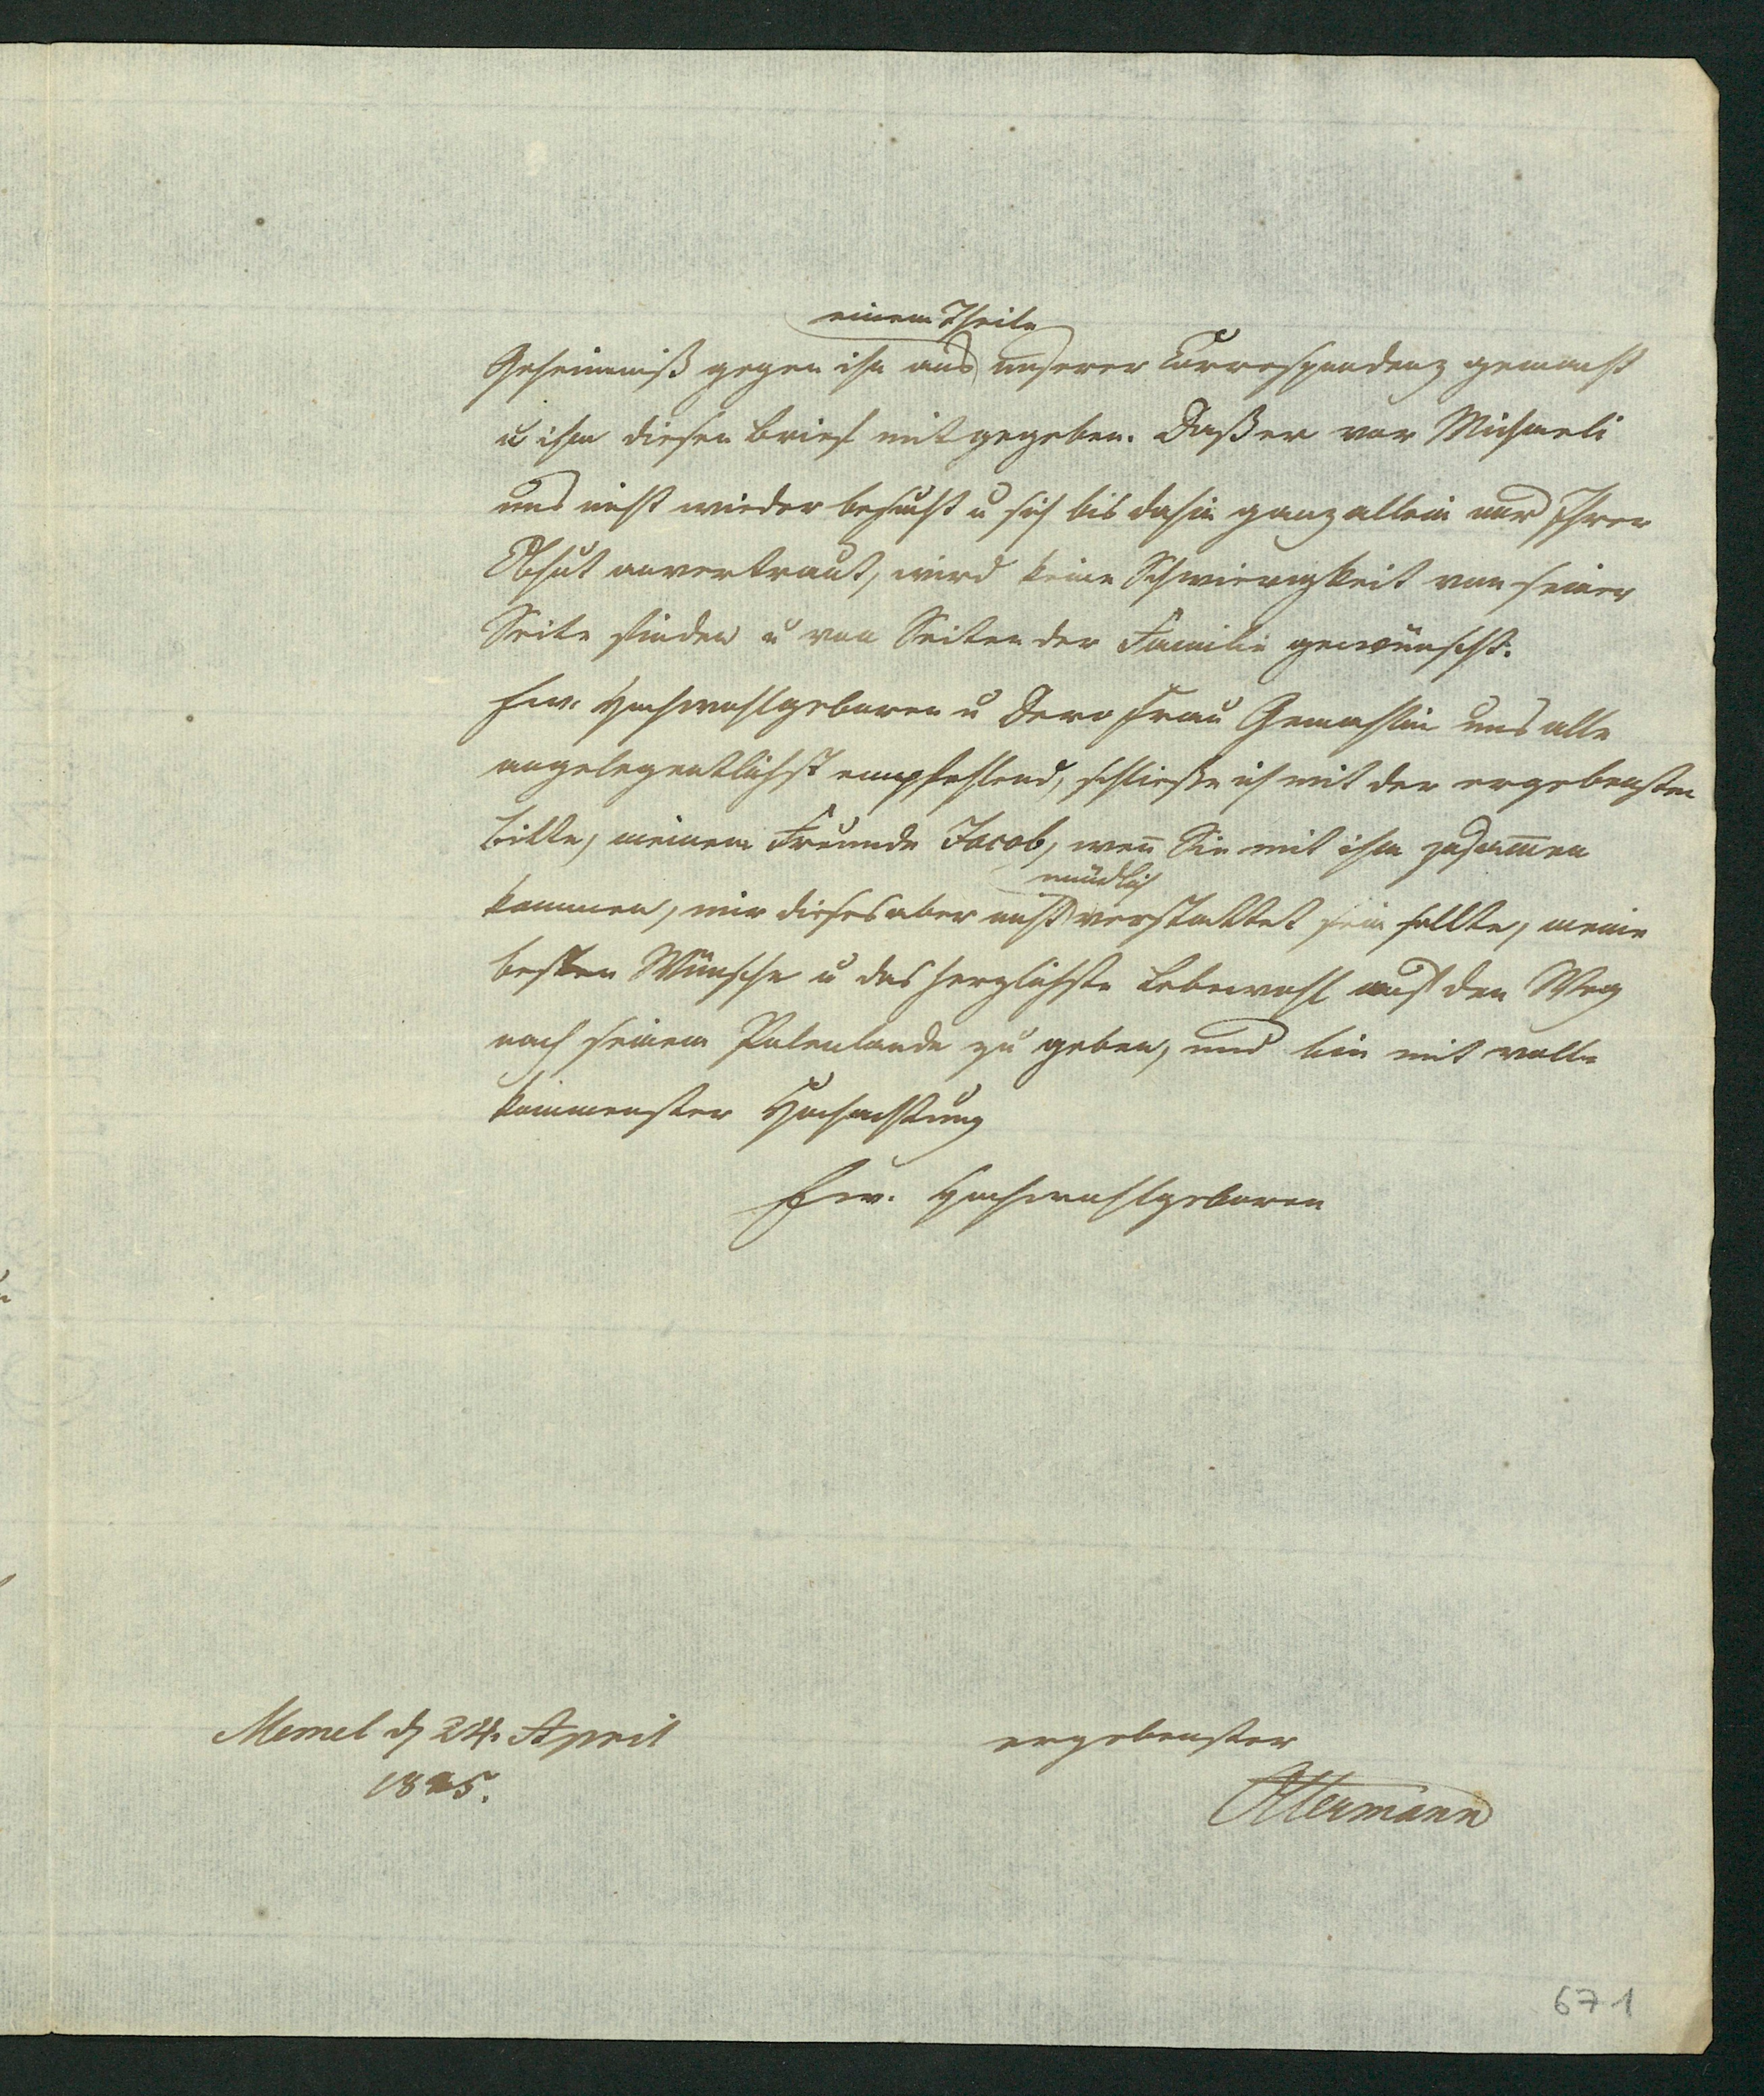 einem Theile
Geheimniß gegen ihn aus unserer Correspondenz gemacht
u ihm diesen Brief mitgegeben. Daß er vor Michaeli
uns nicht wieder besucht u sich bis dahin ganz allein nur Ihrer
Obhut anvertraut, wird keine Schwierigkeit von seiner
Seite finden u von Seiten der Familie gewünscht.
Ew. Hochwohlgeboren u Dero Frau Gemahlin uns alle
angelegentlichst empfehlend, schließe ich mit der ergebensten
Bitte, meinem Freunde Jacob, weñ Sie mit ihm zusam̃en
mündlich
kommen, mir dieses aber nicht verstattet sein sollte, meine
besten Wünsche u das herzlichste Lebewohl auf den Weg
nach seinem Polenlande zu geben, und bin mit voll-
kommenster Hochachtung
Ew. Hochwohlgeboren
Memel d 24. April
1825.
ergebenster
Ottermann
671